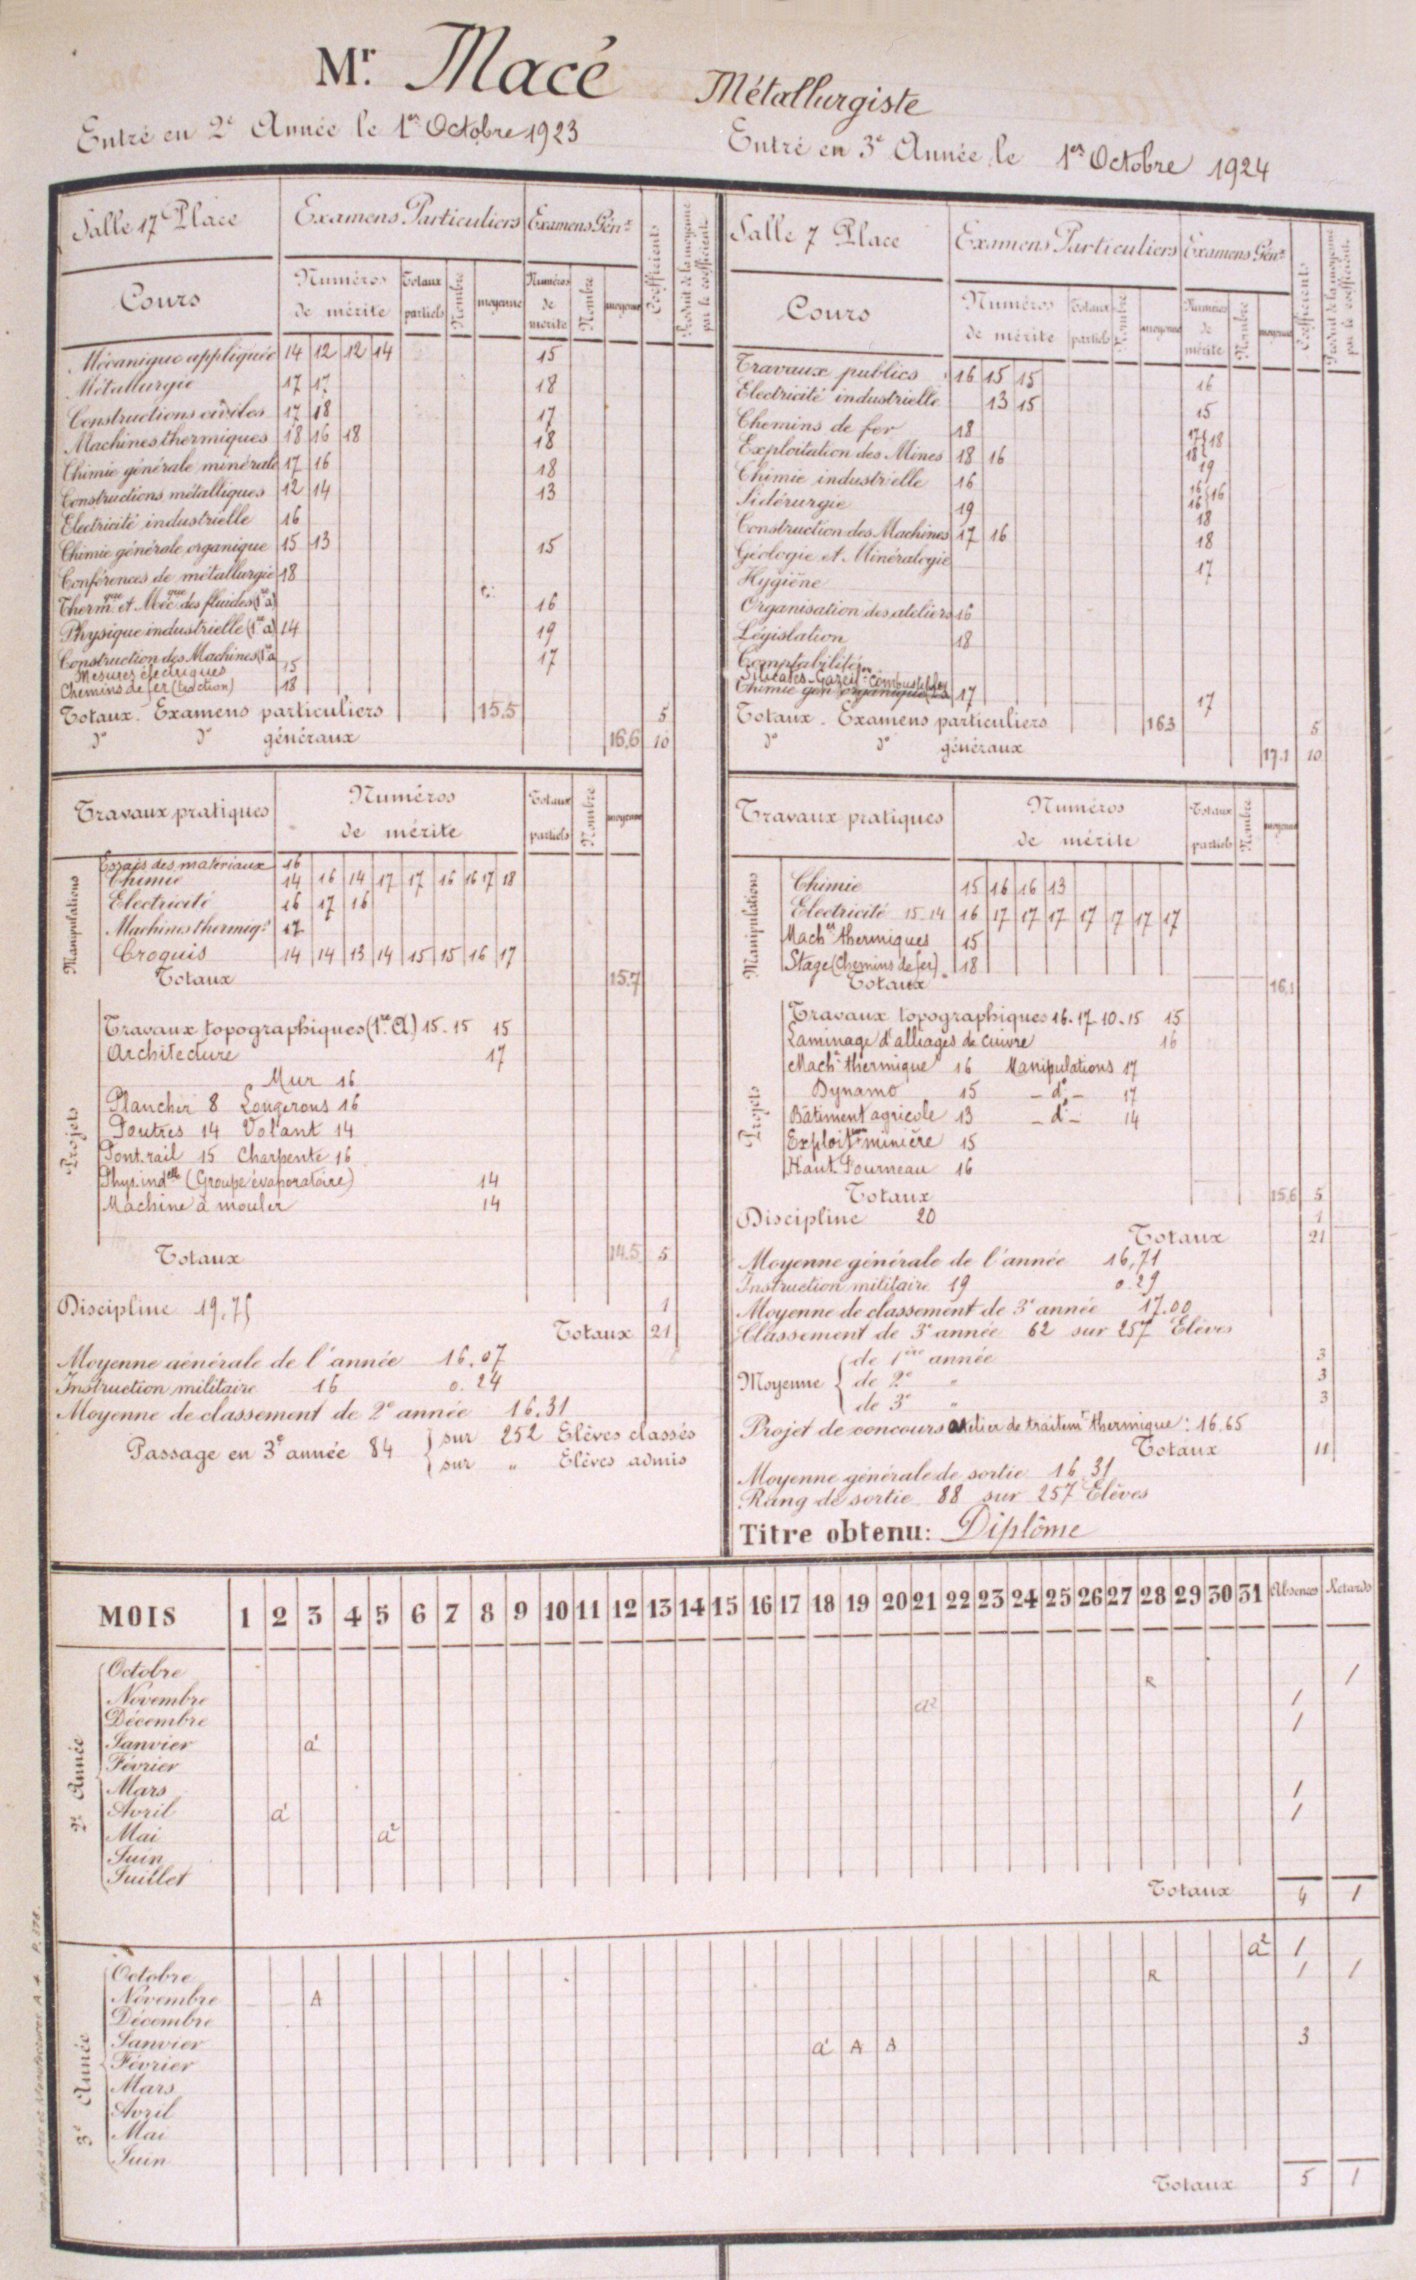 Mr. Macé Métallurgiste
Entré en 2e Année le 1er Octobre 1923
Entré en 3e Année le 1er Octobre 1924
Salle 17 Place Examens Particuliers Examens Génx Coefficients Produit de la moyenne par le coefficient
Cours Numéros de mérite Totaux partiels Nombre moyenne Numéros de mérite Nombre moyenne
Mécanique appliquée 14 12 12 14 15
Métallurgie 17 17 18
Constructions civiles 17 18 17
Machines thermiques 18 16 18 18
Chimie générale minérale 17 16 18
Constructions métalliques 12 14 13
Electricité industrielle 16
Chimie générale organique 15 13 15
Conférences de métallurgie 18
Thermque et Mécque des fluides (1re a) 16
Physique industrielle (1re a) 14 19
Construction des Machines (1re a 17
Mesures électriques 15
Chemins de fer (traction) 18
Totaux. Examens particuliers 15.5 5
do do généraux 16.6 10
Travaux pratiques Numéros de mérite Totaux partiels Nombre moyenne
Manipulations
Essais des matériaux 16
Chimie 14 16 14 17 17 16 16 17 18
Electricité 16 17 16
Machines thermiqs 17
Croquis 14 14 13 14 15 15 16 17
Totaux 15.7
Projets
Travaux topographiques (1re A) 15.15 15
Architecture 17
Mur 16
Plancher 8 Longerons 16
Poutres 14 Volant 14
Pont.rail 15 Charpente 16
Phys.indelle (Groupe évaporatoire) 14
Machine à mouler 14
Totaux 14.5 5
Discipline 19.75 1
Totaux 21
Moyenne générale de l'année 16.07
Instruction militaire 16 0.24
Moyenne de classement de 2e année 16.31
Passage en 3e année 84 sur 252 Elèves classés
sur " Elèves admis
Salle 7 Place Examens Particuliers Examens Génx Coefficients Produit de la moyenne par le coefficient
Cours Numéros de mérite Totaux partiels Nombre moyenne Numéros de mérite Nombre moyenne
Travaux publics 16 15 15 16
Electricité industrielle 13 15 15
Chemins de fer 18 17 18 18
Exploitation des Mines 18 16 19
Chimie industrielle 16 16 16 16
Sidérurgie 19 18
Construction des Machines 17 16 18
Géologie et Minéralogie 17
Hygiène
Organisation des ateliers 16
Législation 18
Comptabilité
Silicates-Gazéion-Combustibles
Chimie gén organique 17 17
Totaux. Examens particuliers 16.3 5
do do généraux 17.1 10
Travaux pratiques Numéros de mérite Totaux partiels Nombre moyenne
Manipulations
Chimie 15 16 16 13
Electricité 15.14 16 17 17 17 17 17 17 17
Machnes thermiques 15
Stage (Chemins de fer) 18
Totaux 16.1
Projets
Travaux topographiques 16.17.10.15 15
Laminage d'alliages de cuivre 16
Mach. thermique 16 Manipulations 17
Dynamo 15 - do - 17
Bâtiment agricole 13 - do - 14
Exploiton minière 15
Haut Fourneau 16
Totaux 15.6 5
Discipline 20 1
Totaux 21
Moyenne générale de l'année 16,71
Instruction militaire 19 0.29
Moyenne de classement de 3e année 17.00
Classement de 3e année 62 sur 257 Elèves
Moyenne de 1ère année 3
de 2e " 3
de 3e " 3
Projet de concours Atelier de traitemt thermique : 16.65
Totaux 11
Moyenne générale de sortie 16.31
Rang de sortie 88 sur 257 Elèves
Titre obtenu: Diplôme
MOIS 1 2 3 4 5 6 7 8 9 10 11 12 13 14 15 16 17 18 19 20 21 22 23 24 25 26 27 28 29 30 31 Absences Retards
2e Année
Octobre R 1
Novembre a2 1
Décembre 1
Janvier a1
Février
Mars 1
Avril a1 1
Mai a2
Juin
Juillet
Totaux 4 1
3e Année
a2 1
Octobre R 1 1
Novembre A
Décembre
Janvier a1 A A 3
Février
Mars
Avril
Mai
Juin
Totaux 5 1